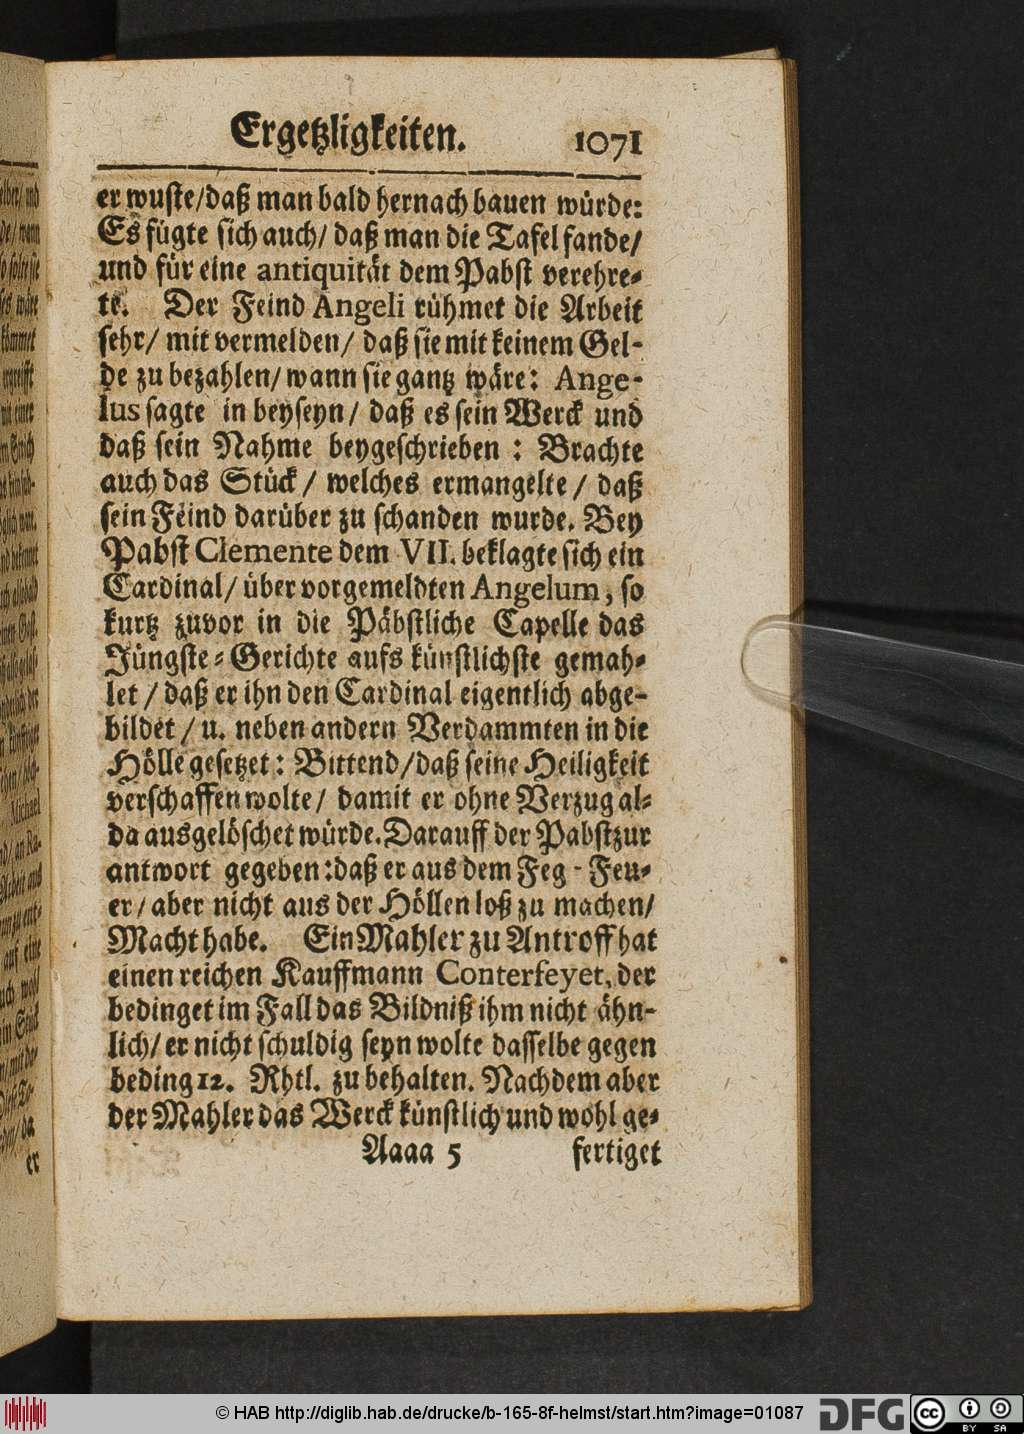 Ergetzligkeiten. 1071
er wuste/daß man bald hernach bauen würde:
Es fügte sich auch/ daß man die Tafel fande/
und für eine antiquität dem Pabst verehre-
te. Der Feind Angeli rühmet die Arbeit
sehr/ mit vermelden/ daß sie mit keinem Gel-
de zu bezahlen/ wann sie gantz wäre: Ange-
lus sagte in beyseyn/ daß es sein Werck und
daß sein Nahme beygeschrieben : Brachte
auch das Stück/ welches ermangelte/ daß
sein Feind darüber zu schanden wurde. Bey
Pabst Clemente dem VII. beklagte sich ein
Cardinal/ über vorgemeldten Angelum, so
kurtz zuvor in die Päbstliche Capelle das
Jüngste-Gerichte aufs künstlichste gemah-
let/ daß er ihn den Cardinal eigentlich abge-
bildet/ u. neben andern Verdammten in die
Hölle gesetzet: Bittend/daß seine Heiligkeit
verschaffen wolte/ damit er ohne Verzug al-
da ausgelöschet würde. Darauff der Pabst zur
antwort gegeben: daß er aus dem Feg-Feu-
er/ aber nicht aus der Höllen loß zu machen/
Macht habe. Ein Mahler zu Antroff hat
einen reichen Kauffmann Conterfeyet, der
bedinget im Fall das Bildniß ihm nicht ähn-
lich/ er nicht schuldig seyn wolte dasselbe gegen
beding 12. Rhtl. zu behalten. Nachdem aber
der Mahler das Werck künstlich und wohl ge-
Aaaa 5 fertiget
© HAB http://diglib.hab.de/drucke/b-165-8f-helmst/start.htm?image=01087
DFG cc BY SA